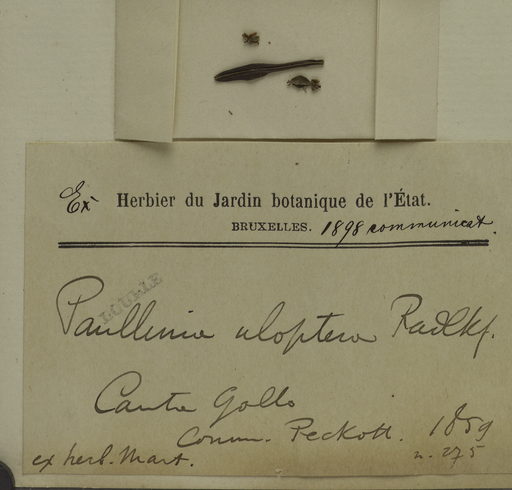 Ex Herbier du Jardin botanique de l'État.
BRUXELLES. 1898 communicat.
Paullinia uloptera Radlkf.
Canta Gallo
Comm. Peckolt. 1859
ex herb. Mart. n. 275